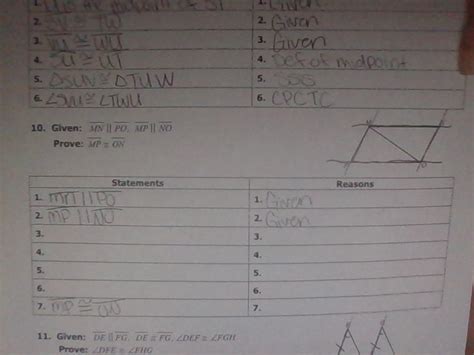 1. U is the midpoint of ST 1. Given
2. SV ≅ TW 2. Given
3. VU ≅ WU 3. Given
4. SU ≅ UT 4. Def of midpoint
5. ΔSUV ≅ ΔTUW 5. SSS
6. ∠SVU ≅ ∠TWU 6. CPCTC
10. Given: MN || PO, MP || NO
Prove: MP ≅ ON
Statements Reasons
1. MN || PO 1. Given
2. MP || NO 2. Given
3. 3.
4. 4.
5. 5.
6. 6.
7. MP ≅ ON 7.
11. Given: DE || FG, DE ≅ FG, ∠DEF ≅ ∠FGH
Prove: ∠DFE ≅ ∠FHG